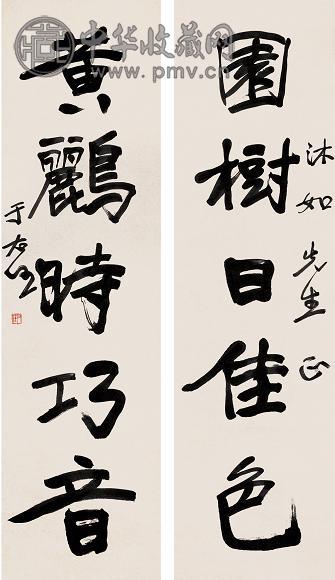 中华收藏网
www.pmv.cn
園樹日佳色
沐如先生正
黃鸝時巧音
于右任